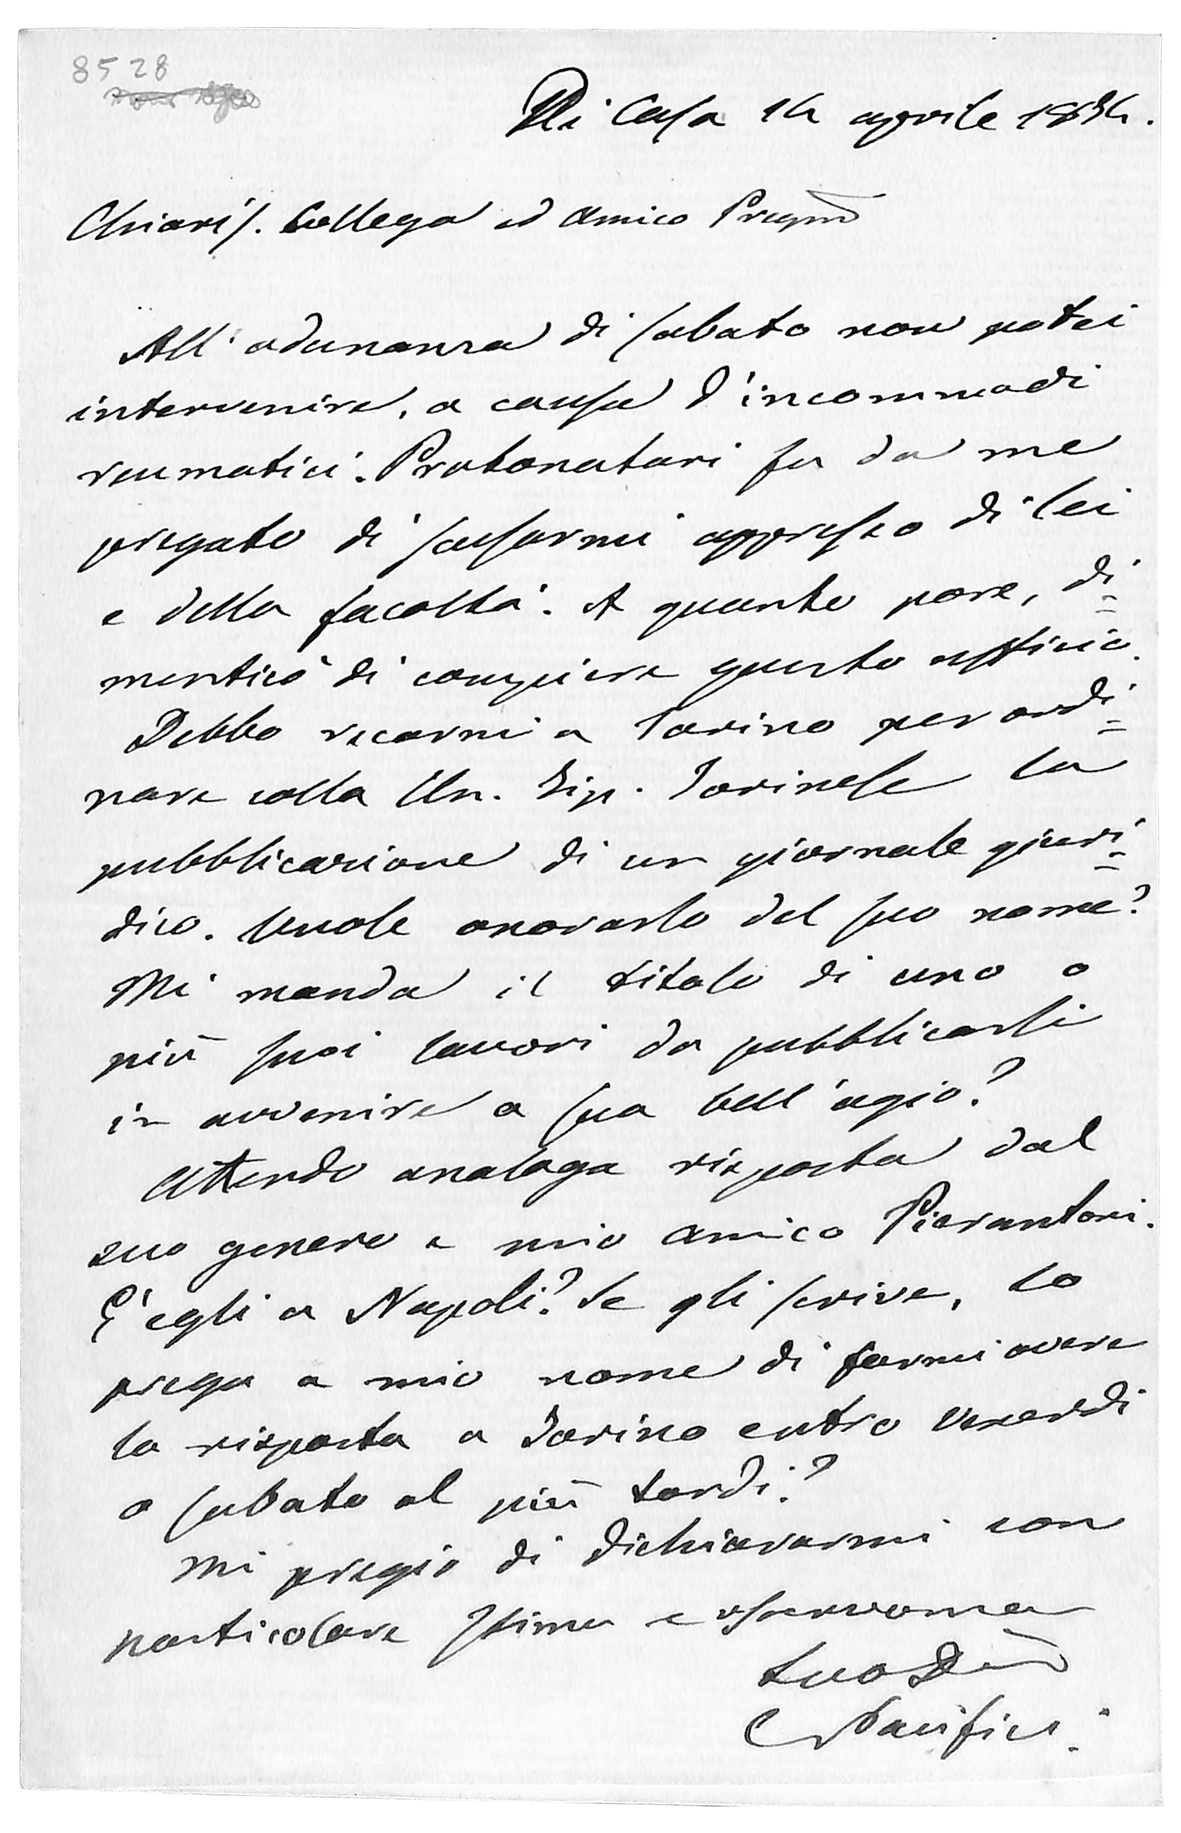 8528
Di Casa 14 aprile 1884.
Chiaris. Collega ed amico Pregmo
All'adunanza di sabato non potei
intervenire, a causa d'incommodi
reumatici. Protonotari fu da me
pregato di scusarmi appresso di lei
e della facoltà. A quanto pare, di=
menticò di compiere questo ufficio.
Debbo recarmi a Torino per ordi=
nare colla Un. Tip. Torinese la
pubblicazione di un giornale giuri=
dico. Vuole onorarlo del suo nome?
Mi manda il titolo di uno o
più suoi lavori da pubblicarsi
in avvenire a sua bell'agio?
Attendo analoga risposta dal
suo genero e mio amico Pierantoni.
È egli a Napoli? Se gli scrive, lo
prega a mio nome di farmi avere
la risposta a Torino entro Venerdi
o sabato al più tardi?
Mi pregio di dichiararmi con
particolare stima e osservanza
Suo Dmo
Pacifici